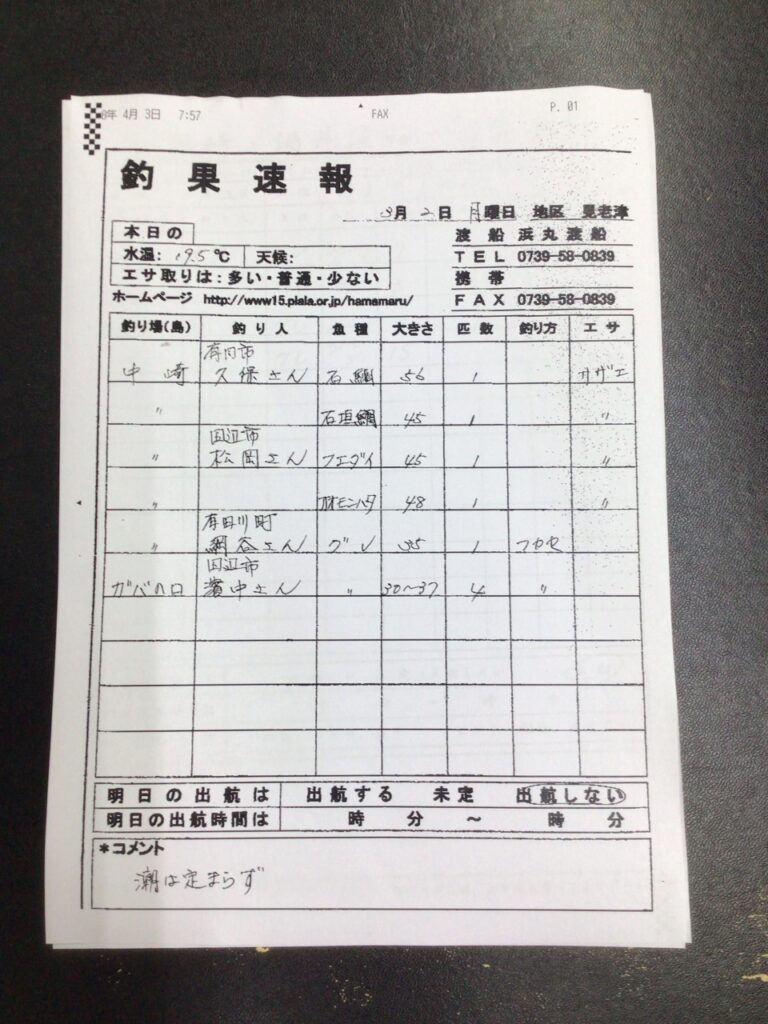 8年 4月 3日 7:57 FAX P. 01
釣果速報
3月 2日 月曜日 地区 見老津
本日の
水温: 19.5℃ 天候:
エサ取りは:多い・普通・少ない
渡船 浜丸渡船
TEL 0739-58-0839
携帯
FAX 0739-58-0839
ホームページ http://www15.plala.or.jp/hamamaru/
釣り場(島) 釣り人 魚種 大きさ 匹数 釣り方 エサ
中崎 久保さん 石鯛 56 1 サザエ
〃 石垣鯛 45 1 〃
田辺市
〃 松岡さん フエダイ 45 1 〃
〃 オオモンハタ 48 1 〃
有田川町
〃 網谷さん グレ 35 1 フカセ
田辺市
ガバの口 濱中さん 〃 30~37 4 〃
明日の出航は 出航する 未定 出航しない
明日の出航時間は 時 分 ~ 時 分
*コメント
潮は定まらず